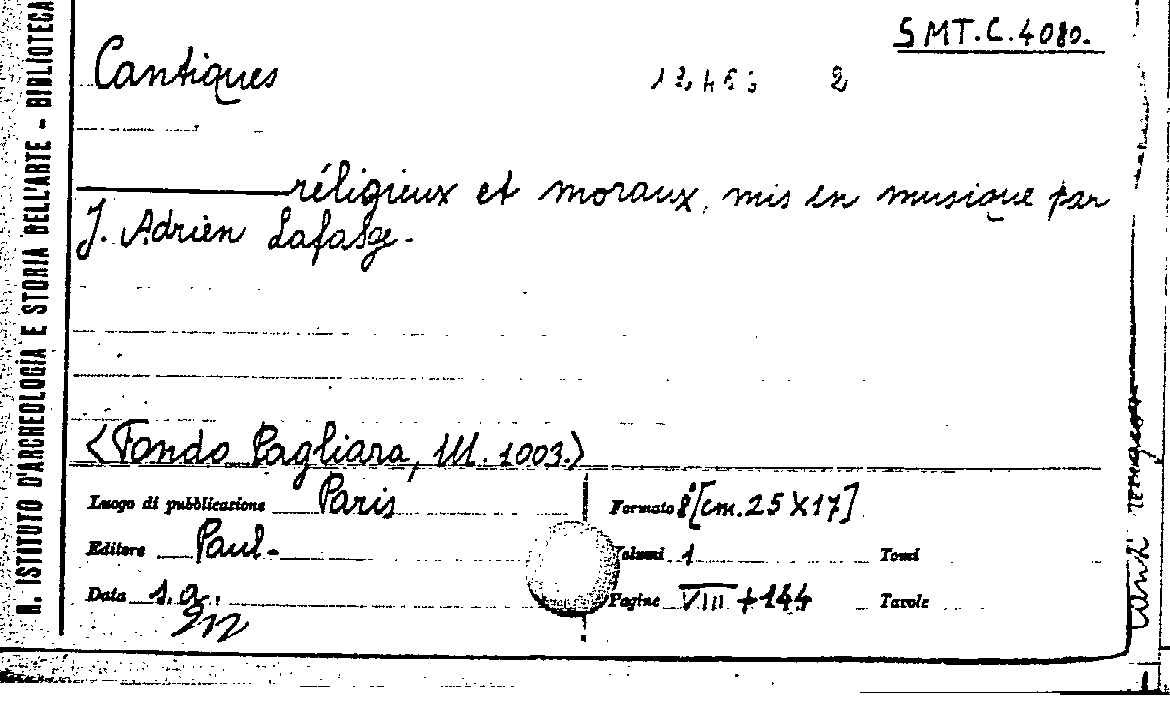 SMT.C.4080.
Cantiques
réligieux et moraux, mis en musique par
J. Adrien Lafasge.
<Fondo Pagliara, III. 1003.>
Luogo di pubblicazione Paris
Formato 8° [cm. 25 X 17]
Editore Paul.
Volumi 1
Tomi
Data
Pagine VIII + 144
Tavole
R. ISTITUTO D'ARCHEOLOGIA E STORIA DELL'ARTE - BIBLIOTECA